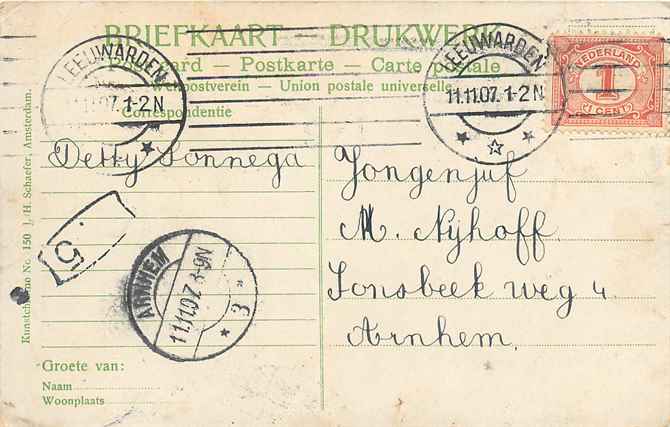 BRIEFKAART — DRUKWERK
Postkarte — Carte postale
Weltpostverein — Union postale universelle
Correspondentie
LEEUWARDEN
11.11.07. 1-2 N
LEEUWARDEN
11.11.07. 1-2 N
NEDERLAND
1
1 CENT
Detty Sonnega
Jongenjuf
M. Nijhoff
Sonsbeek weg 4
Arnhem.
5
ARNHEM
11.11.07 8-9N
3
Kunstchromo No. 150 J. H. Schaefer, Amsterdam.
Groete van:
Naam
Woonplaats